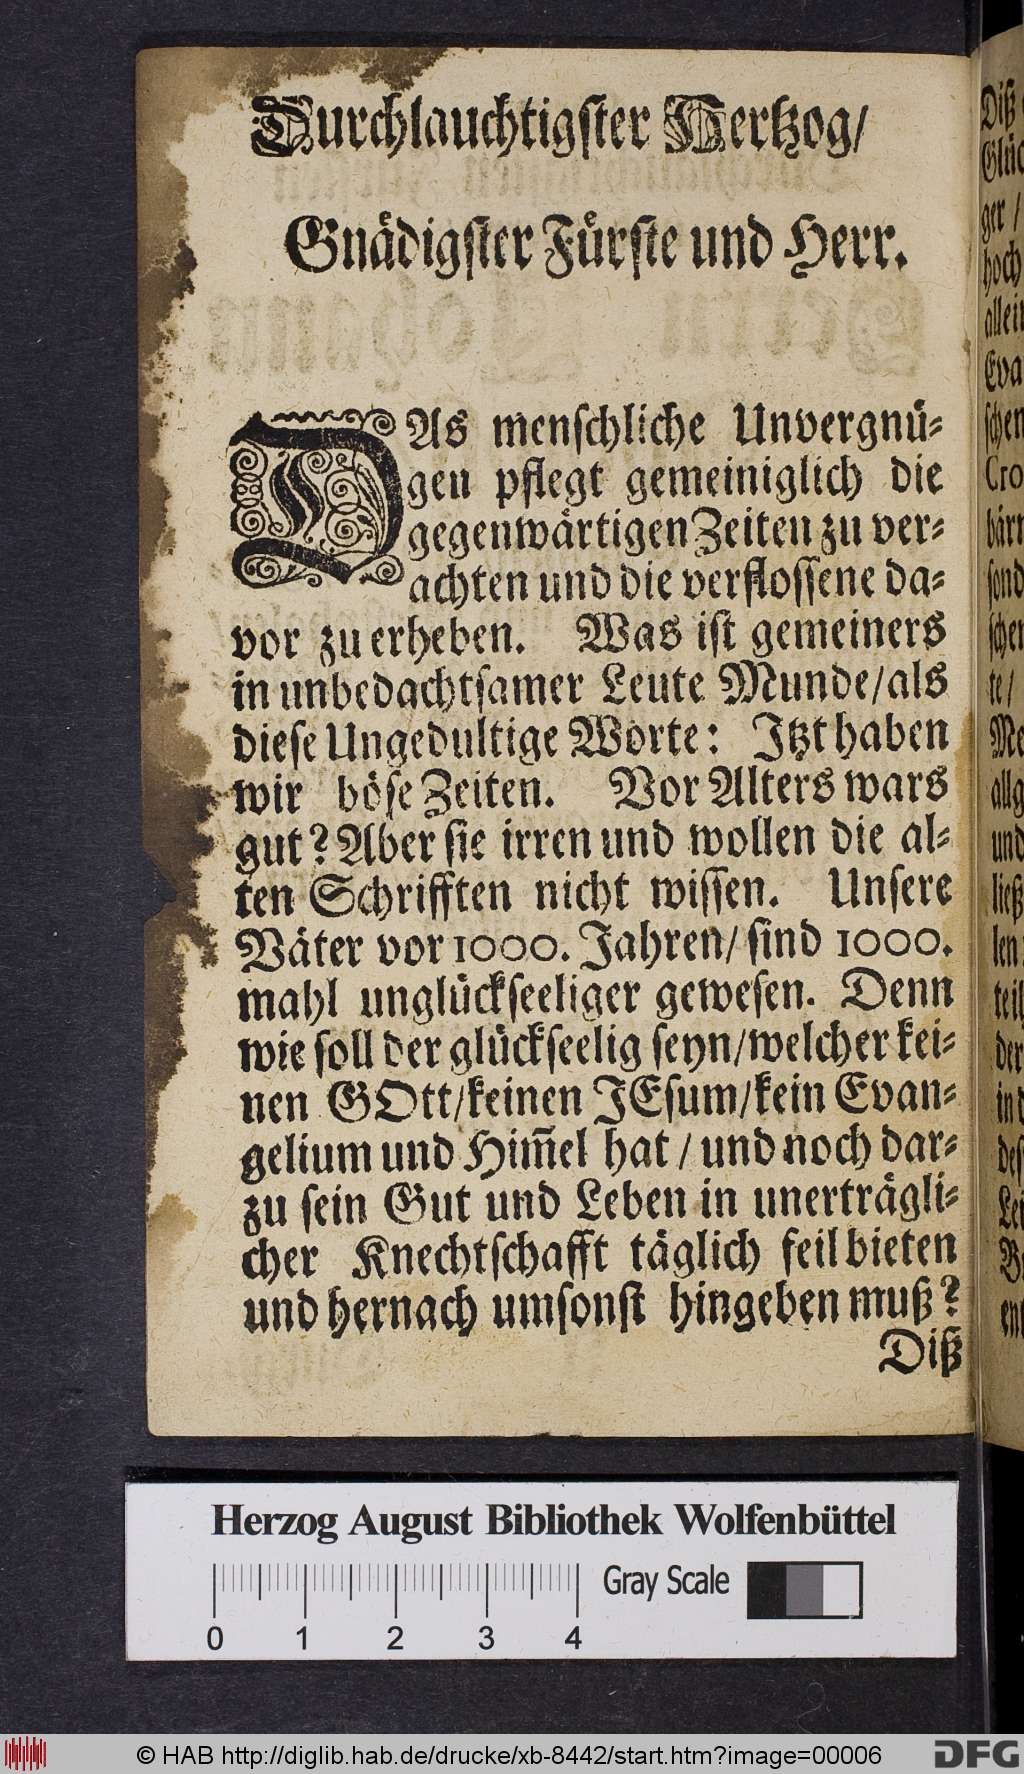 Durchlauchtigster Hertzog/
Gnädigster Fürste und Herr.
DAs menschliche Unvergnü-
gen pflegt gemeiniglich die
gegenwärtigen Zeiten zu ver-
achten und die verflossene da-
vor zu erheben. Was ist gemeiners
in unbedachtsamer Leute Munde/als
diese Ungedultige Worte: Jtzt haben
wir böse Zeiten. Vor Alters wars
gut? Aber sie irren und wollen die al-
ten Schrifften nicht wissen. Unsere
Väter vor 1000. Jahren/sind 1000.
mahl unglückseeliger gewesen. Denn
wie soll der glückseelig seyn/welcher kei-
nen GOtt/keinen JEsum/kein Evan-
gelium und Him̃el hat / und noch dar-
zu sein Gut und Leben in unerträgli-
cher Knechtschafft täglich feil bieten
und hernach umsonst hingeben muß?
Diß
Diß
Glüc
ger /
hoch
allei
Eva
schen
Cro
bärr
sond
scher
te/
Me
allg
und
ließ
len
teil
der
in d
des
Le
ent
Herzog August Bibliothek Wolfenbüttel
Gray Scale
0 1 2 3 4
© HAB http://diglib.hab.de/drucke/xb-8442/start.htm?image=00006
DFG